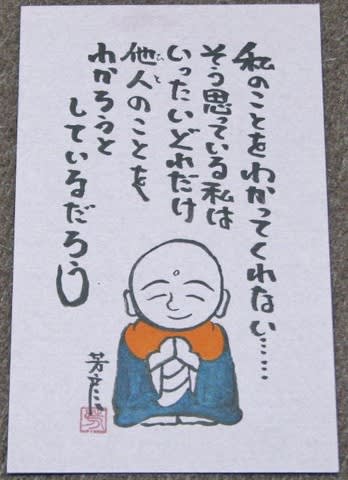 私のことをわかってくれない……
そう思っている私は
いったいどれだけ
他人のことを
ひと
わかろうと
しているだろう